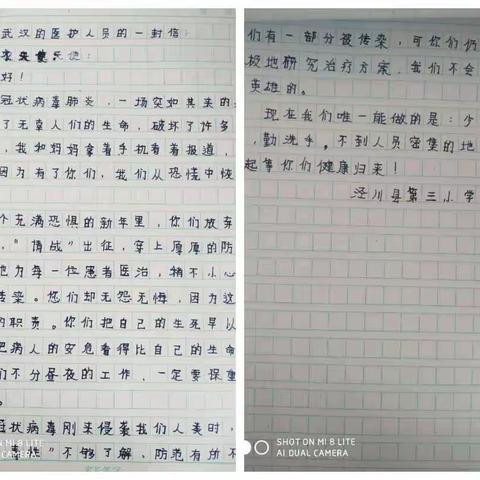 武汉的医护人员的一封信
衣天使：
好！
冠状病毒肺炎，一场突如其来的
了无辜人们的生命，破坏了许多
，我和妈妈拿着手机看着报道，
因为有了你们，我们从恐慌中恢
个充满恐惧的新年里，你们放弃
，“情战”出征，穿上厚厚的防
地为每一位患者医治，稍不小心
传染。您们却无怨无悔，因为这
的职责。你们把自己的生死早以
把病人的安危看得比自己的生命
们不分昼夜的工作，一定要保重
。
冠状病毒刚来侵袭我们人类时，
”不够了解，防范有所不
SHOT ON MI 8 LITE
AI DUAL CAMERA
们有一部分被传染，可你们仍
极地研究治疗方案，我们不会
英雄的。
现在我们唯一能做的是：少
，勤洗手。不到人员密集的地
起等你们健康归来！
泾川县第三小学
SHOT ON MI 8 LITE
AI DUAL CAMERA